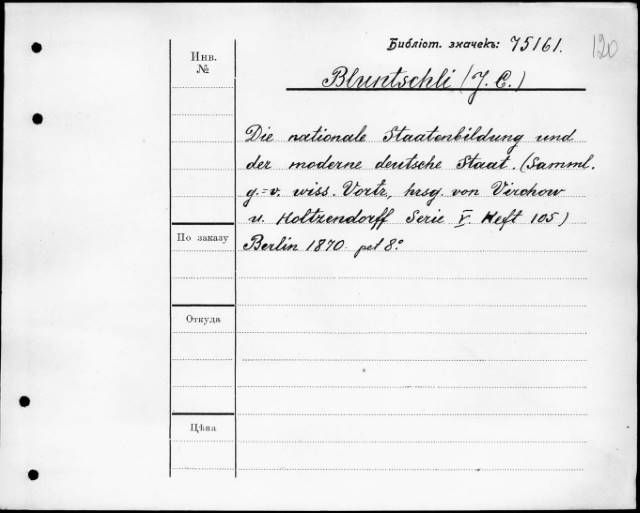 Библіот. значекъ: 75161.
120
Инв. №
Bluntschli (J. C.)
Die nationale Staatenbildung und
der moderne deutsche Staat. (Samml.
g.=v. wiss. Vortr., hrsg. von Virchow
u. Holtzendorff Serie V. Heft 105)
По заказу
Berlin 1870. pet 8º
Откуда
Цѣна